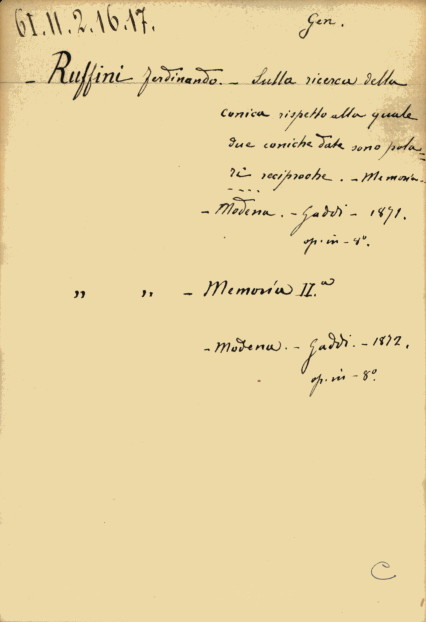 61.11.2.16.17.
Gen.
- Ruffini Ferdinando. - Sulla ricerca della
conica rispetto alla quale
due coniche date sono pola=
ri reciproche. - Memoria -
- Modena. - Gaddi - 1871.
op. in - 8°.
" " - Memoria II.a
- Modena. - Gaddi. - 1872.
op. in - 8°.
C